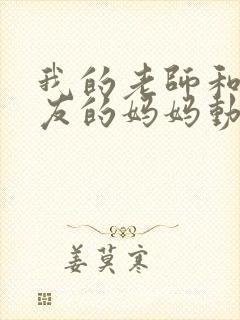 我的老師和
友的妈妈動
姜莫寒